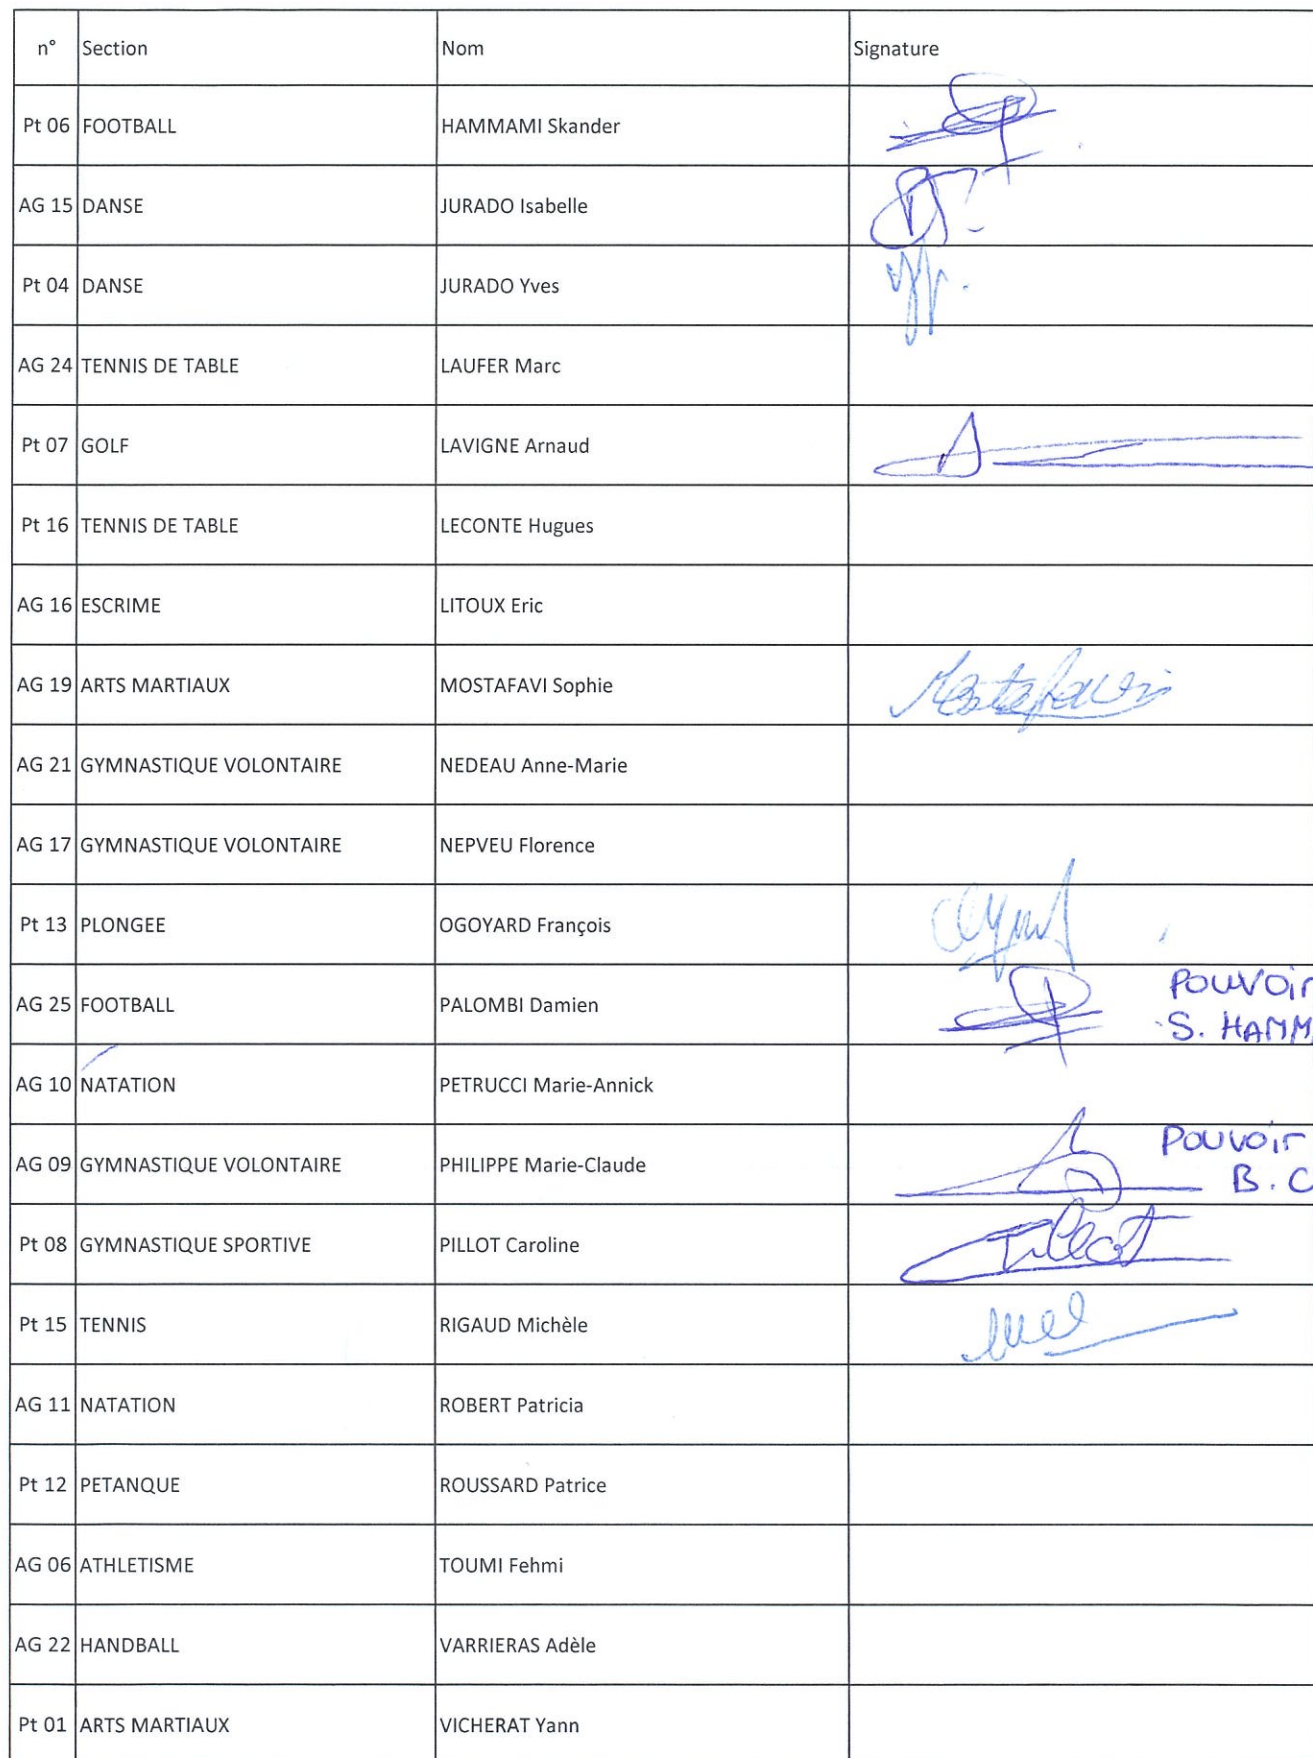 n° Section Nom Signature
Pt 06 FOOTBALL HAMMAMI Skander
AG 15 DANSE JURADO Isabelle
Pt 04 DANSE JURADO Yves
AG 24 TENNIS DE TABLE LAUFER Marc
Pt 07 GOLF LAVIGNE Arnaud
Pt 16 TENNIS DE TABLE LECONTE Hugues
AG 16 ESCRIME LITOUX Eric
AG 19 ARTS MARTIAUX MOSTAFAVI Sophie Mostafavi
AG 21 GYMNASTIQUE VOLONTAIRE NEDEAU Anne-Marie
AG 17 GYMNASTIQUE VOLONTAIRE NEPVEU Florence
Pt 13 PLONGEE OGOYARD François
AG 25 FOOTBALL PALOMBI Damien POUVOIR
S. HAMM
AG 10 NATATION PETRUCCI Marie-Annick
AG 09 GYMNASTIQUE VOLONTAIRE PHILIPPE Marie-Claude POUVOIR
B. C
Pt 08 GYMNASTIQUE SPORTIVE PILLOT Caroline Pillot
Pt 15 TENNIS RIGAUD Michèle
AG 11 NATATION ROBERT Patricia
Pt 12 PETANQUE ROUSSARD Patrice
AG 06 ATHLETISME TOUMI Fehmi
AG 22 HANDBALL VARRIERAS Adèle
Pt 01 ARTS MARTIAUX VICHERAT Yann